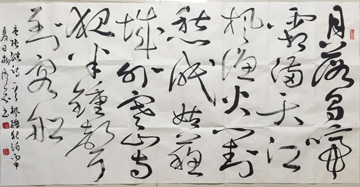 月落烏啼
霜滿天江
楓漁火對
愁眠姑蘇
城外寒山寺
夜半鐘聲
到客船
唐張繼詩一首楓橋夜泊丙申
夏日